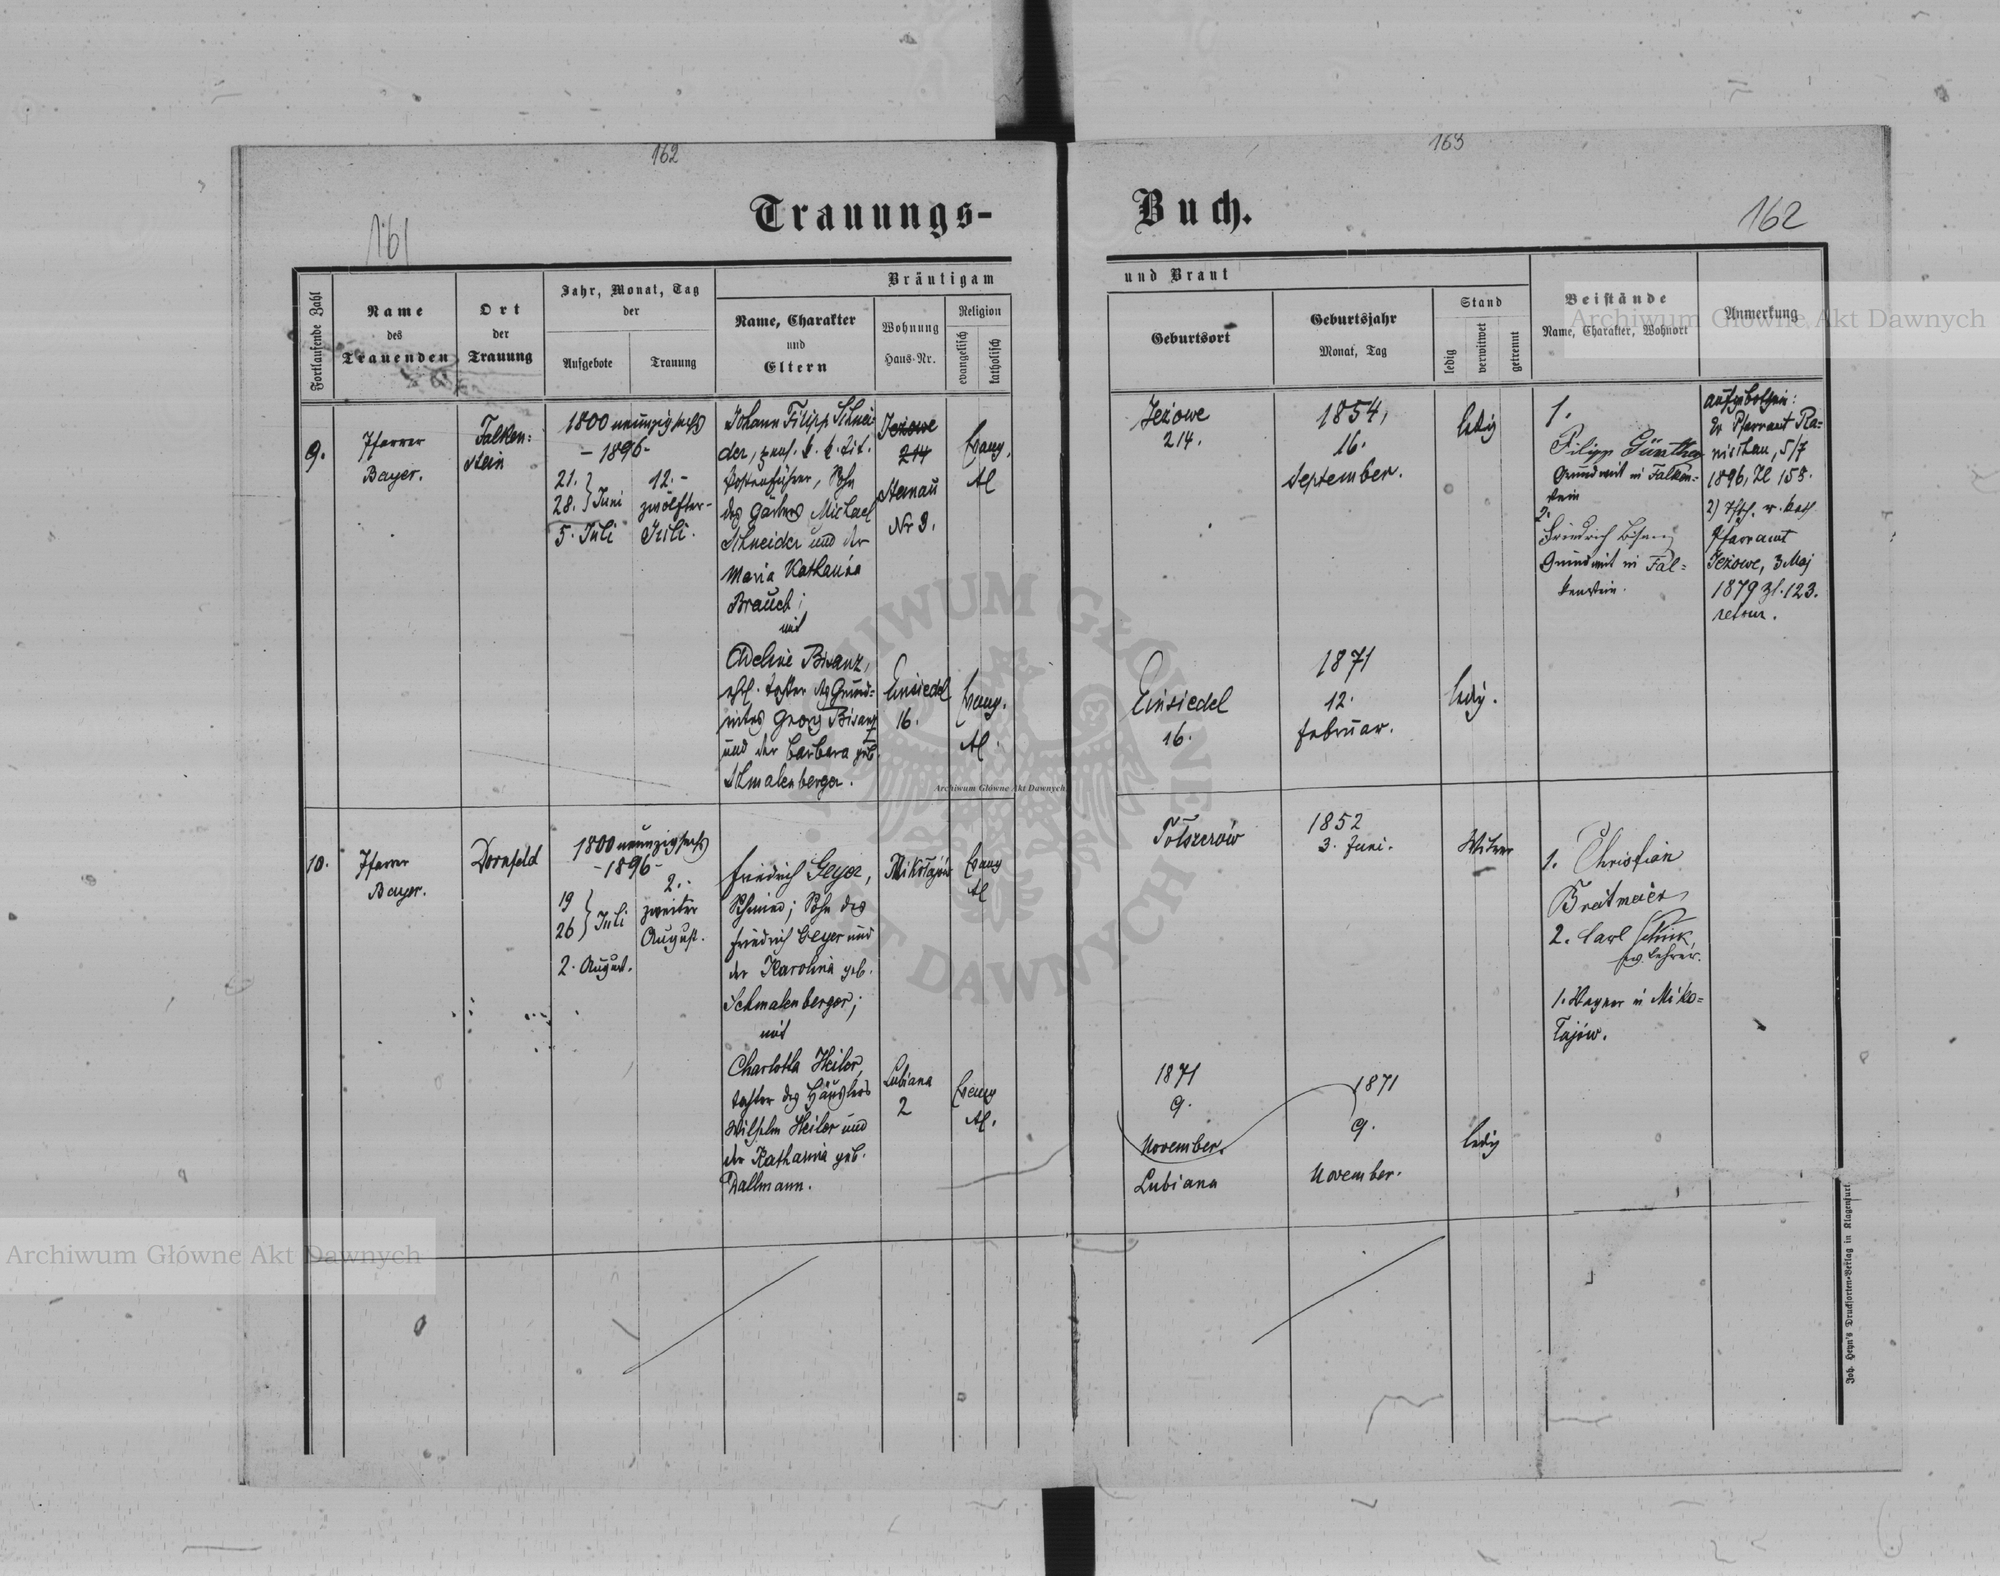 162
163
161
162
Trauungs-
Buch.
Fortlaufende Zahl
Name
des
Trauenden
Ort
der
Trauung
Jahr, Monat, Tag
der
Aufgebote
Trauung
Bräutigam
Name, Charakter
und
Eltern
Wohnung
Haus-Nr.
Religion
evangelisch
katholisch
und Braut
Geburtsort
Geburtsjahr
Monat, Tag
Stand
ledig
verwitwet
getrennt
Beistände
Name, Charakter, Wohnort
Anmerkung
9.
Pfarrer
Bayer.
Falken=
stein
1800 neunzig sechs
- 1896 -
21.
28. } Juni
5. Juli
12. -
zwölfter -
Juli.
Johann Filipp Schnei
der, pens. k. k. tit.
Postenführer, Sohn
des Gärbers Michael
Schneider und der
Maria Katharina
Brauch;
mit
Adeline Bisanz,
ehl. Tochter des Grund=
wirtes Georg Bisanz
und der Barbara geb.
Schmalenberger.
Jeżowe
214
Sternau
Nr 3.
Evang.
AC
Einsiedel
16.
Evang.
AC.
Jeżowe
214.
1854,
16.
September.
ledig
Einsiedel
16.
1871
12.
Februar.
ledig.
1.
Filipp Günther
Grundwirt in Falken=
stein
2.
Friedrich Bisanz
Grundwirt in Fal=
kenstein.
aufgebothen:
Ev Pfarramt Ra=
nischau, 5/7
1896, Zl 155.
Pfarramt
Jeżowe, 3 Maj
1879 Zl. 123.
retour.
10.
Pfarrer
Bayer.
Dornfeld
1800 neunzig sechs
- 1896 -
19
26 } Juli
2. August.
2. -
zweiter
August.
Friedrich Geyer,
Schmied; Sohn des
Friedrich Geyer und
der Karolina geb.
Schmalenberger;
mit
Charlotta Heiler,
Tochter des Häuslers
Wilhelm Heiler und
der Katharina geb.
Dallmann.
Mikołajów
Evang
AC
Lubiana
2
Evang
AC.
1852
3. Juni.
Witwer
1871
9.
November.
Lubiana
1871
9.
November.
ledig
1. Christian
Breitmaier
2. Carl
ev. Lehrer.
1. Wagner in Miko=
łajów.
Joh. Heyn's Drucksorten-Verlag in Klagenfurt.
Archiwum Główne Akt Dawnych
Archiwum Główne Akt Dawnych
Archiwum Główne Akt Dawnych
ARCHIWUM GŁÓWNE AKT DAWNYCH